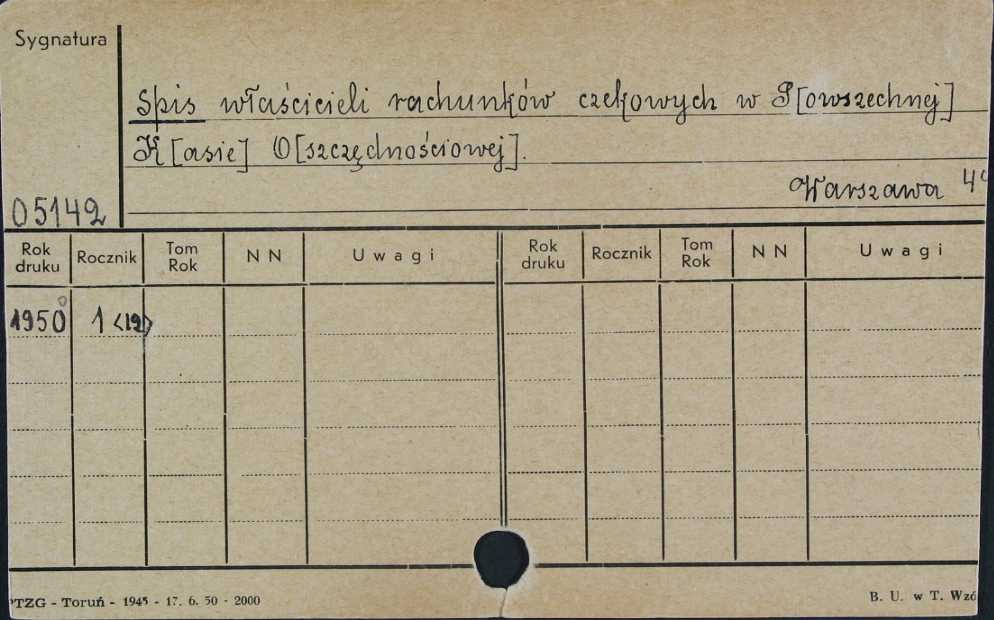 Sygnatura
Spis właścicieli rachunków czekowych w P[owszechnej]
K[asie] O[szczędnościowej].
Warszawa 4°
05142
Rok druku Rocznik Tom Rok N N Uwagi Rok druku Rocznik Tom Rok N N Uwagi
1950 1 <12>
PTZG - Toruń - 1945 - 17. 6. 50 - 2000 B. U. w T. Wzó